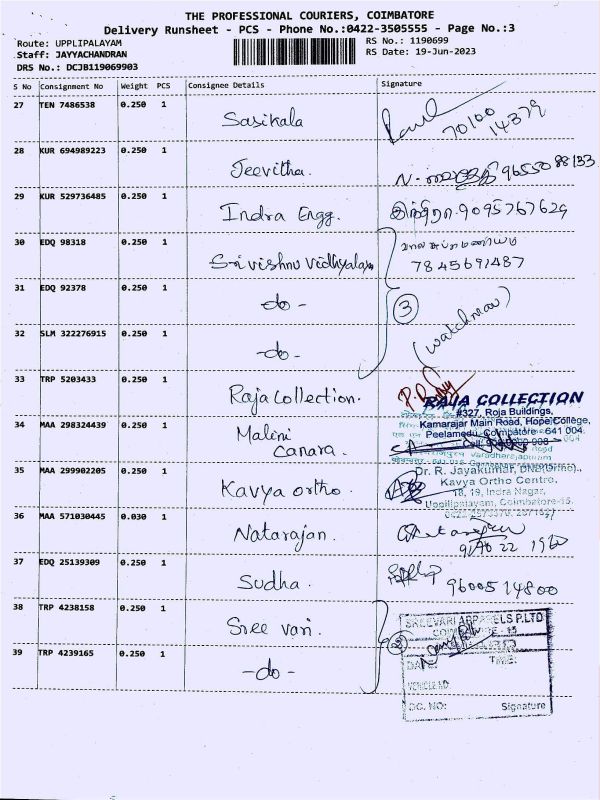 THE PROFESSIONAL COURIERS, COIMBATORE
Delivery Runsheet - PCS - Phone No.:0422-3505555 - Page No.:3
Route: UPPLIPALAYAM
RS No.: 1190699
Staff: JAYYACHANDRAN
RS Date: 19-Jun-2023
DRS No.: DCJB119069903
S No Consignment No Weight PCS Consignee Details Signature
27 TEN 7486538 0.250 1 Sasikala 70100
14379
28 KUR 694989223 0.250 1 Jeevitha. 9655088133
29 KUR 529736485 0.250 1 Indra Engg. இந்திரா.9095767629
30 EDQ 98318 0.250 1 Sri vishnu vidhyalaya பாலசுப்ரமணியம்
7845691487
31 EDQ 92378 0.250 1 -do- 3
32 SLM 322276915 0.250 1 -do- (watchman)
33 TRP 5203433 0.250 1 Raja Collection.
RAJA COLLECTION
#327, Roja Buildings,
Kamarajar Main Road, Hope College,
Peelamedu, Coimbatore - 641 004.
34 MAA 298324439 0.250 1 Malini
Canara.
35 MAA 299902205 0.250 1 Kavya ortho.
Dr. R. Jayakumar, DNB(Ortho).,
Kavya Ortho Centre,
18, 19, Indra Nagar,
Uppilipalayam, Coimbatore-15.
36 MAA 571030445 0.030 1 Natarajan.
37 EDQ 25139309 0.250 1 Sudha. 9600514800
38 TRP 4238158 0.250 1 Sree vari.
39 TRP 4239165 0.250 1 -do-
SREEVARI APPARELS P.LTD
DATE: TIME:
VEHICLE NO:
DC. NO: Signature